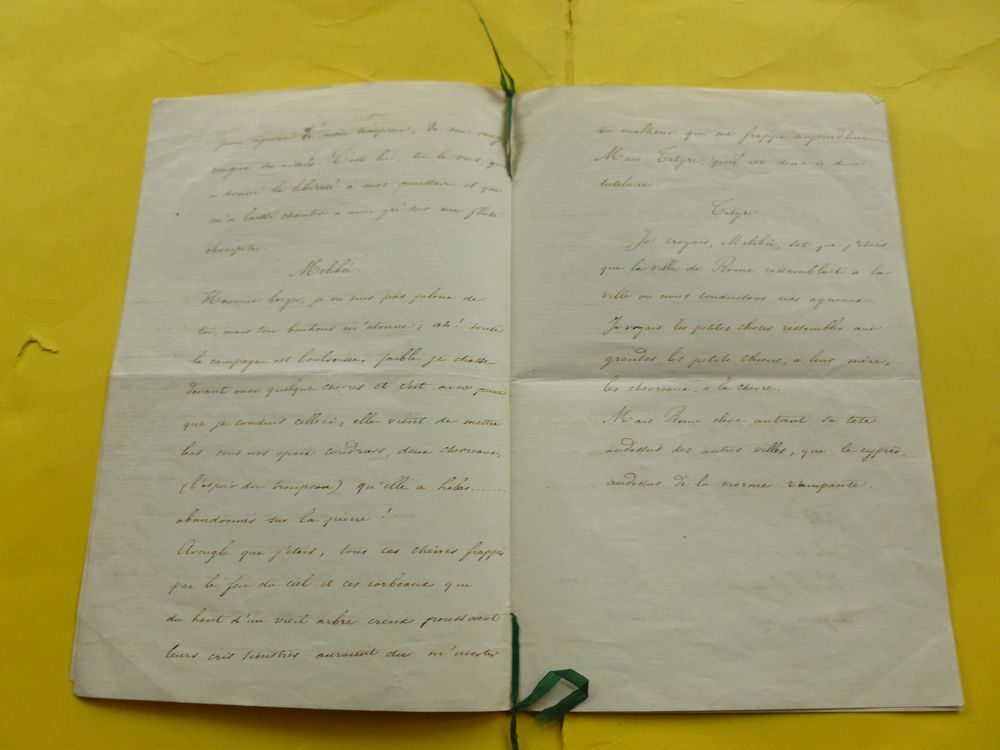 agneau de mon troupeau, de son sang
rougira des autels. C'est lui, tu le vois, qui
a donné la liberté a mes genisses et qui
m'a laissé chanter a mon gré sur ma flute
champêtre.
Melibée
Heureux berger, je ne suis pas jaloux de
toi, mais ton bonheur m'etonne; ah! toute
la campagne est boulversée, faible je chasse
devant moi quelque chevres et c'est avec peine
que je conduis celleci; elle vient de mettre
bas, sous nos epais coudriers, deux chevreaux,
(l'espoir du troupeau) qu'elle a helas........
abandonnés sur la pierre!
Aveugle que j'étais, tous ces chênes frappés
par le feu du ciel et ces corbeaux qui
du haut d'un vieil arbre creux poussaient
leurs cris sinistres auraient du m'avertir
du malheur qui me frappe aujourd'hui....
Mais, Tityre, quel est donc ce dieu
tutelaire
Tityre
Je croyais, Melibée, sot que j'étais
que la ville de Rome ressemblait a la
ville ou nous conduisons nos agneaux.
Je voyais les petites choses ressembler aux
grandes les ptits chiens, a leur mère,
les chevreaux, a la chevre.
Mais Rome eleve autant sa tete
audessus des autres villes, que le cyprès,
audessus de la viorne rampante.